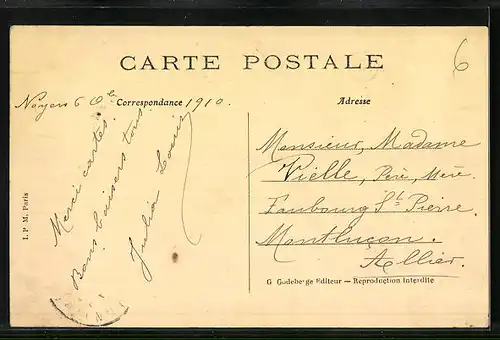 6
CARTE POSTALE
Noyers 6 Obre 1910.
Correspondance
Adresse
Merci cartes.
Bons baisers tous.
Julia
Monsieur, Madame
Vielle, Père, Mère.
Faubourg St Pierre.
Montluçon.
Allier.
I. P. M. Paris
G Godeberge Editeur — Reproduction interdite